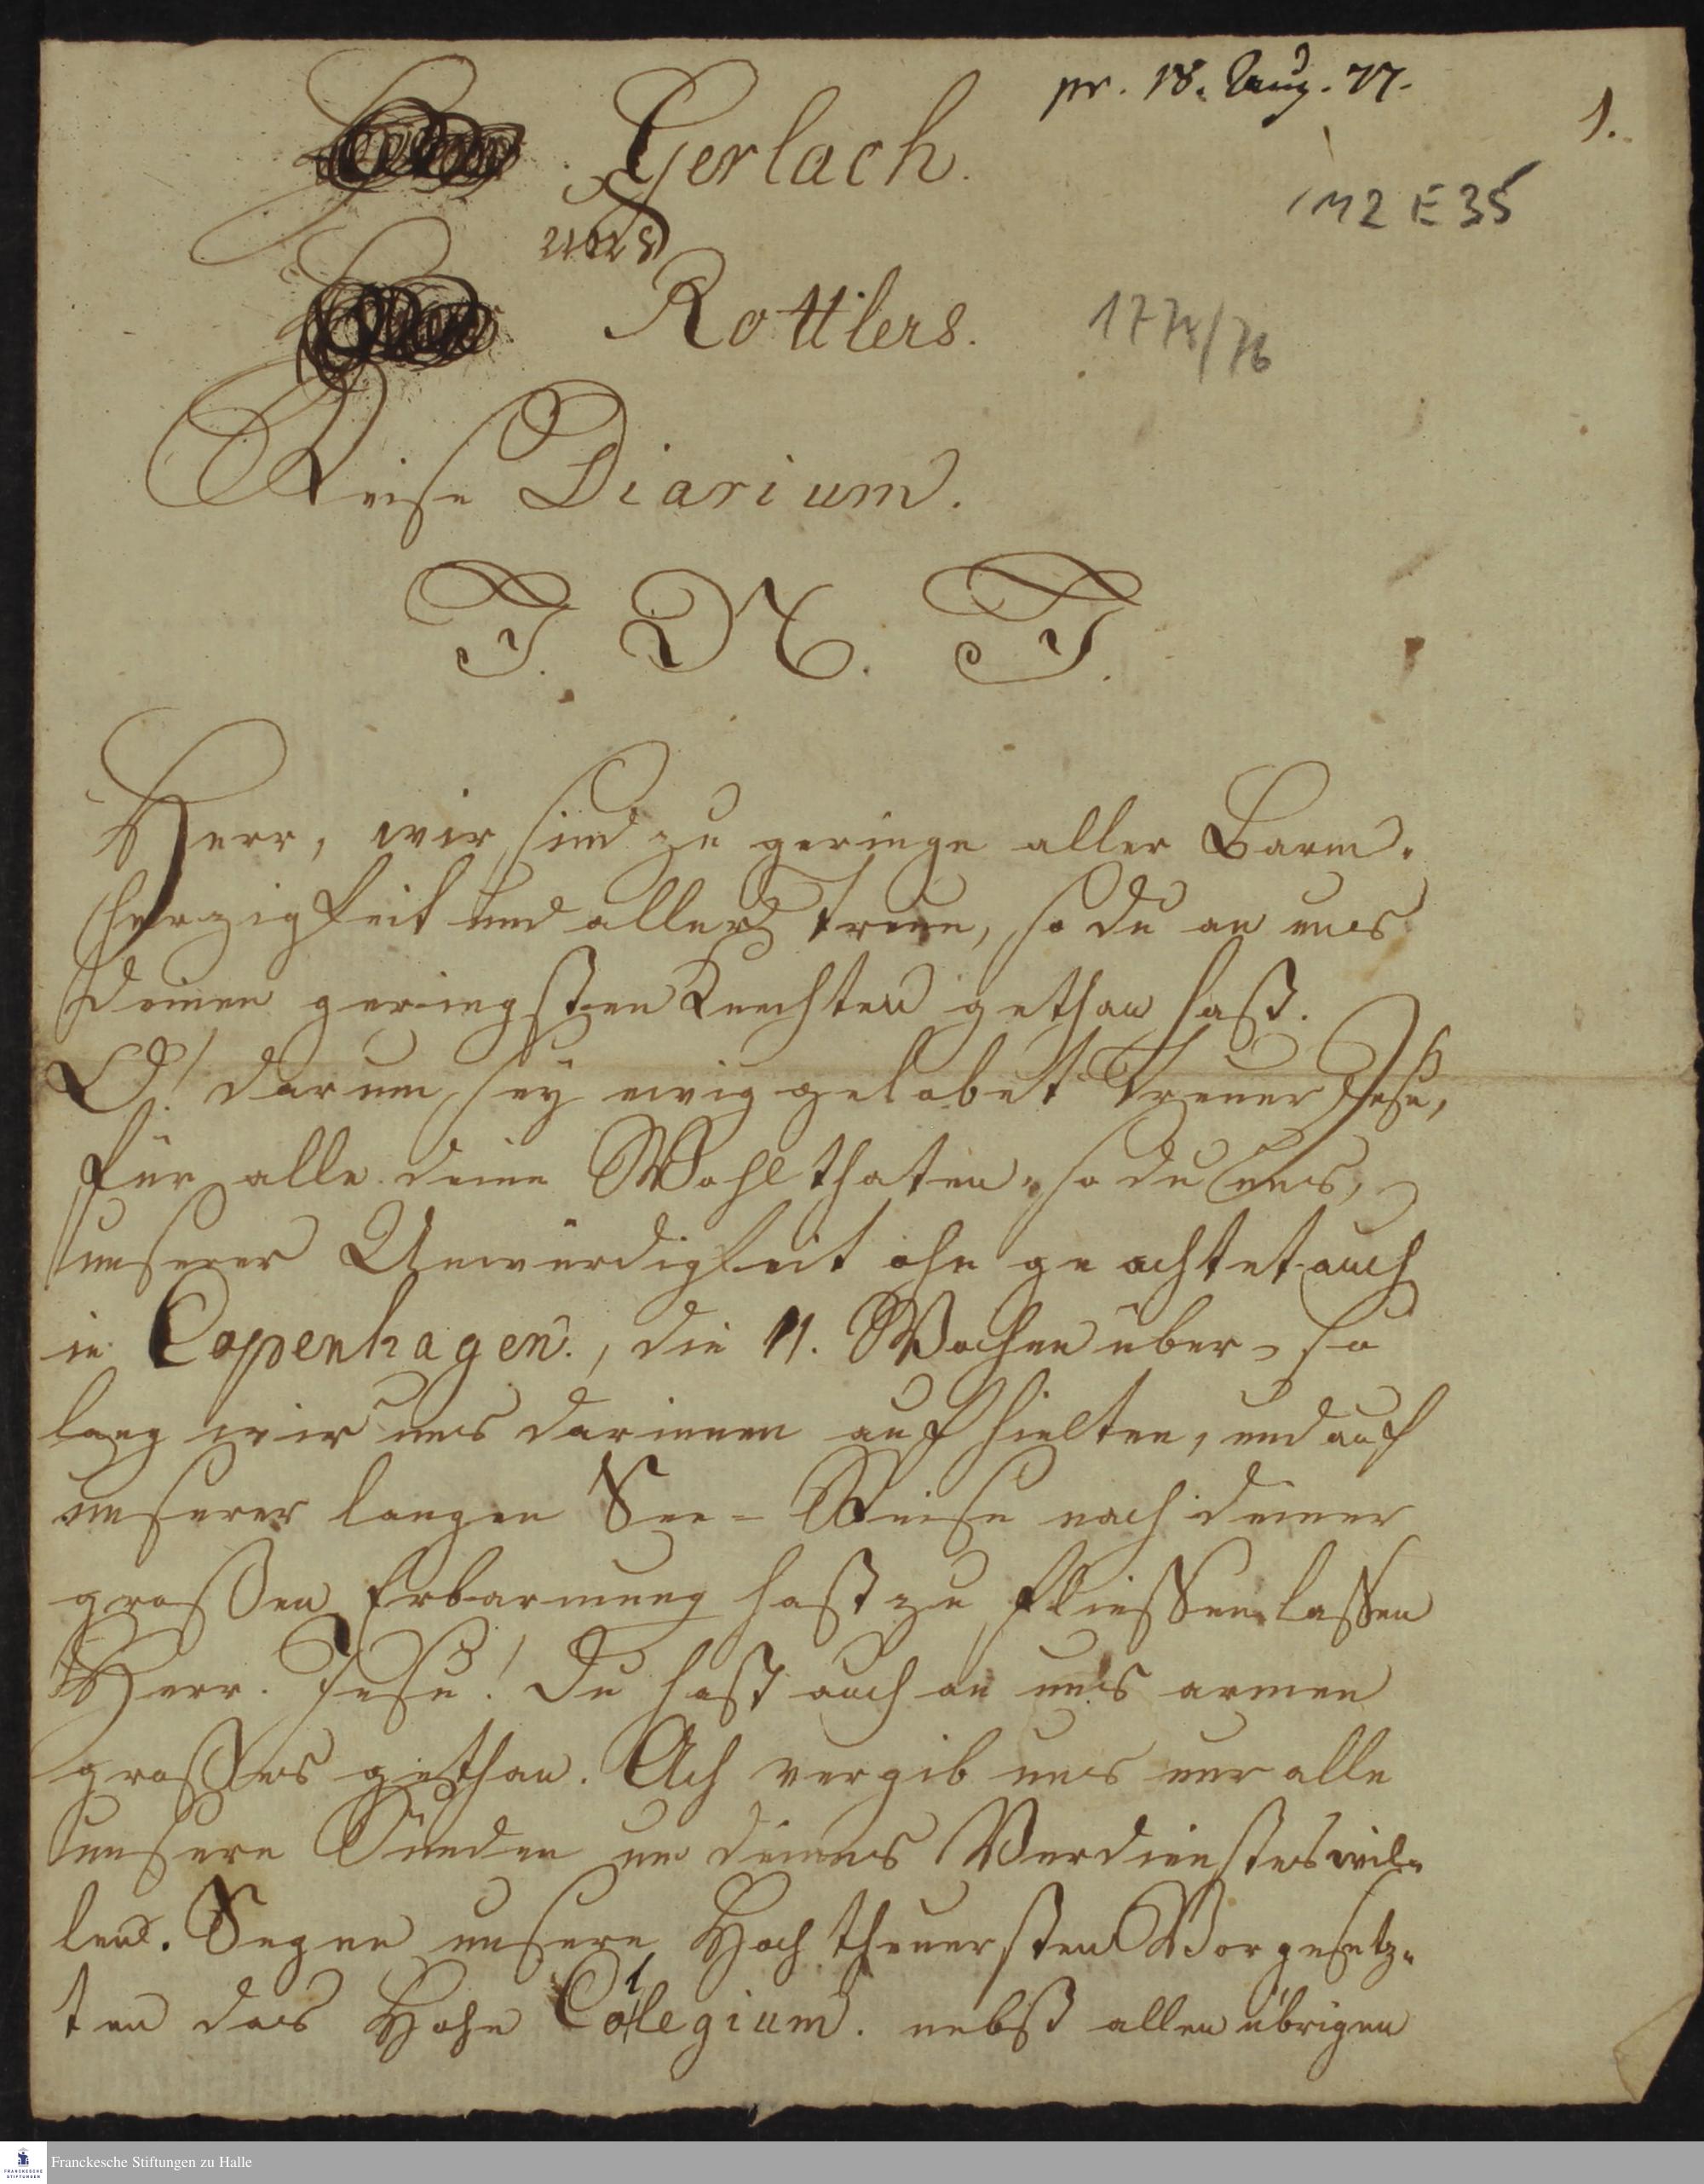 pr. 18. Aug. 77.
1.
Gerlach.
1 M2 E 35
und
Rottlers.
1775/76
Reise Diarium.
J. N. J.
Herr, wir sind zu geringe aller Barm-
herzigkeit und aller Treue, so du an uns
deinen geringsten Knechten gethan hast.
O! darum sey ewig gelobet treuer Jesu,
für alle deine Wohlthaten, so du uns,
unserer Unwürdigkeit ohngeachtet auch
in Copenhagen., die 11. Wochen über, so
lang wir uns darinnen aufhielten, und auf
unserer langen See-Reise nach deiner
großen Erbarmung hast zu fliessen lassen
Herr Jesu! Du hast auch an uns armen
grosses gethan. Ach vergib uns nur alle
unsere Sünden um deines Verdienstes wil-
len. Segne unsere Hochtheuersten Vorgesetz-
ten das Hohe Collegium. nebst allen übrigen
FRANCKESCHE
STIFTUNGEN
Franckesche Stiftungen zu Halle